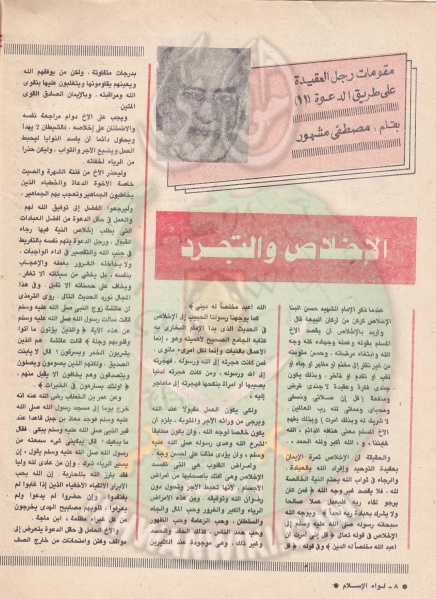 مقومات رجل العقيدة
على طريق الدعوة (١١)
بقلم : مصطفى مشهور
الإخلاص والتجرد
عندما ذكر الإمام الشهيد حسن البنا
الإخلاص كركن من أركان البيعة قال :
وأريد بالإخلاص أن يقصد الأخ
المسلم بقوله وعمله وجهاده كله وجه
الله وابتغاء مرضاته ، وحسن مثوبته
من غير نظر إلى مغنم أو مظهر أو جاه أو
لقب أو تقدم أو تأخر ، وبذلك يكون
جندي فكرة وعقيدة لا جندي غرض
ومنفعة ﴿ قل إن صلاتي ونسكي
ومحياي ومماتي لله رب العالمين .
لا شريك له وبذلك أمرت ﴾ وبذلك يفهم
الأخ المسلم معنى هتافه الدائم « الله
غايتنا » و « الله أكبر ولله الحمد » .
والحقيقة أن الإخلاص ثمرة الإيمان
بعقيدة التوحيد وإفراد الله بالعبادة .
لله . فلا يقصد غير وجه الله ﴿ فمن كان
يرجو لقاء ربه فليعمل عملا صالحا
ولا يشرك بعبادة ربه أحدا ﴾ . ويوجه الله
سبحانه رسوله صلى الله عليه وسلم إلى
الإخلاص في قوله تعالى ﴿ قل إني أمرت أن
أعبد الله مخلصا له الدين ﴾ وفي قوله : ﴿ قل
الله أعبد مخلصا له ديني ﴾ .
كما يوجهنا رسولنا الحبيب إلى الإخلاص
في الحديث الذي بدأ الإمام البخاري به
كتابه الجامع الصحيح لأهميته وهو : إنما
الأعمال بالنيات وإنما لكل امرئ ما نوى ،
فمن كانت هجرته إلى الله ورسوله ، فهجرته
إلى الله ورسوله ، ومن كانت هجرته لدنيا
يصيبها أو امرأة ينكحها فهجرته إلى ما هاجر
إليه .
ولكي يكون العمل مقبولا عند الله
ويرجى من ورائه الأجر والمثوبة ، يلزم أن
يكون خالصا لوجه الله ، وأن يكون مطابقا
لشرع الله وهدى رسوله صلى الله عليه
وسلم ، وأن يؤدى متقنا على أحسن وجه .
وأمراض القلوب هي التي تفسد
الإخلاص وهي أفتك بأصحابها من أمراض
الأجسام . لأنها تحبط الأجر وتحول دون
رضوان الله وتوفيقه . ومن هذه الأمراض
الرياء والكبر والغرور وحب المال والجاه
والسلطان ، وحب الزعامة وحب الظهور
وحب حمد الناس ، كذلك الحقد والحسد
وغير ذلك ، وهي موجودة عند الكثيرين
بدرجات متفاوتة ، ولكن من يوفقهم الله
ويعينهم يقاومونها ويتغلبون عليها بتقوى
الله ومراقبته ، وبالإيمان الصادق القوى
المتين .
ويجب على الأخ دوام مراجعة نفسه
والاطمئنان على إخلاصه ، فالشيطان لا يهدأ
ويحاول دائما أن يفسد النوايا ليحبط
العمل ويضيع الأجر والثواب ، ولكن حذرا
من الرياء لخفائه .
وليحذر الأخ من فتنة الشهرة والصيت
خاصة الأخوة الدعاة والخطباء الذين
يخاطبون الجماهير وتعجب بهم الجماهير .
وليرجعوا الفضل إلى توفيق الله لهم
والعمل في حقل الدعوة من أفضل العبادات
التي يطلب إخلاص النية فيها رجاء
القبول . ورجل الدعوة يتهم نفسه بالتفريط
في جنب الله والتقصير في أداء الواجبات ،
ولا يداخله الغرور بعمله والإعجاب
بنفسه ، بل يخشى من سيئاته ألا تغفر .
ويخاف على حسناته ألا تقبل ، وفي هذا
المجال نورد الحديث التالي : روى الترمذي
أن عائشة زوج النبي صلى الله عليه وسلم
قالت سألت رسول الله صلى الله عليه وسلم
عن هذه الآية ﴿ والذين يؤتون ما آتوا
وقلوبهم وجلة ﴾ قالت عائشة هم الذين
يشربون الخمر ويسرقون ؟ قال لا يا بنت
الصديق . ولكنهم الذين يصومون ويصلون
ويتصدقون وهم يخافون ألا يقبل منهم ،
﴿ أولئك يسارعون في الخيرات ﴾ .
وعن عمر بن الخطاب رضي الله عنه أنه
خرج يوما إلى مسجد رسول الله صلى الله
عليه وسلم فوجد معاذ بن جبل قاعدا عند
قبر النبي صلى الله عليه وسلم يبكي . فقال
ما يبكيك ؟ قال يبكيني شيء سمعته من
رسول الله صلى الله عليه وسلم يقول : إن
يسير الرياء شرك . وإن من عادى لله وليا
فقد بارز الله بالمحاربة ، إن الله يحب
الأبرار الأتقياء الأخفياء الذين إذا غابوا لم
يفتقدوا وإن حضروا لم يدعوا ولم
يعرفوا ، قلوبهم مصابيح الهدى يخرجون
من كل غبراء مظلمة ، ابن ماجة .
والأخ العامل في حقل الدعوة يتعرض إلى
مواقف وفتن وامتحانات من خارج الصف
٨ - لواء الإسلام